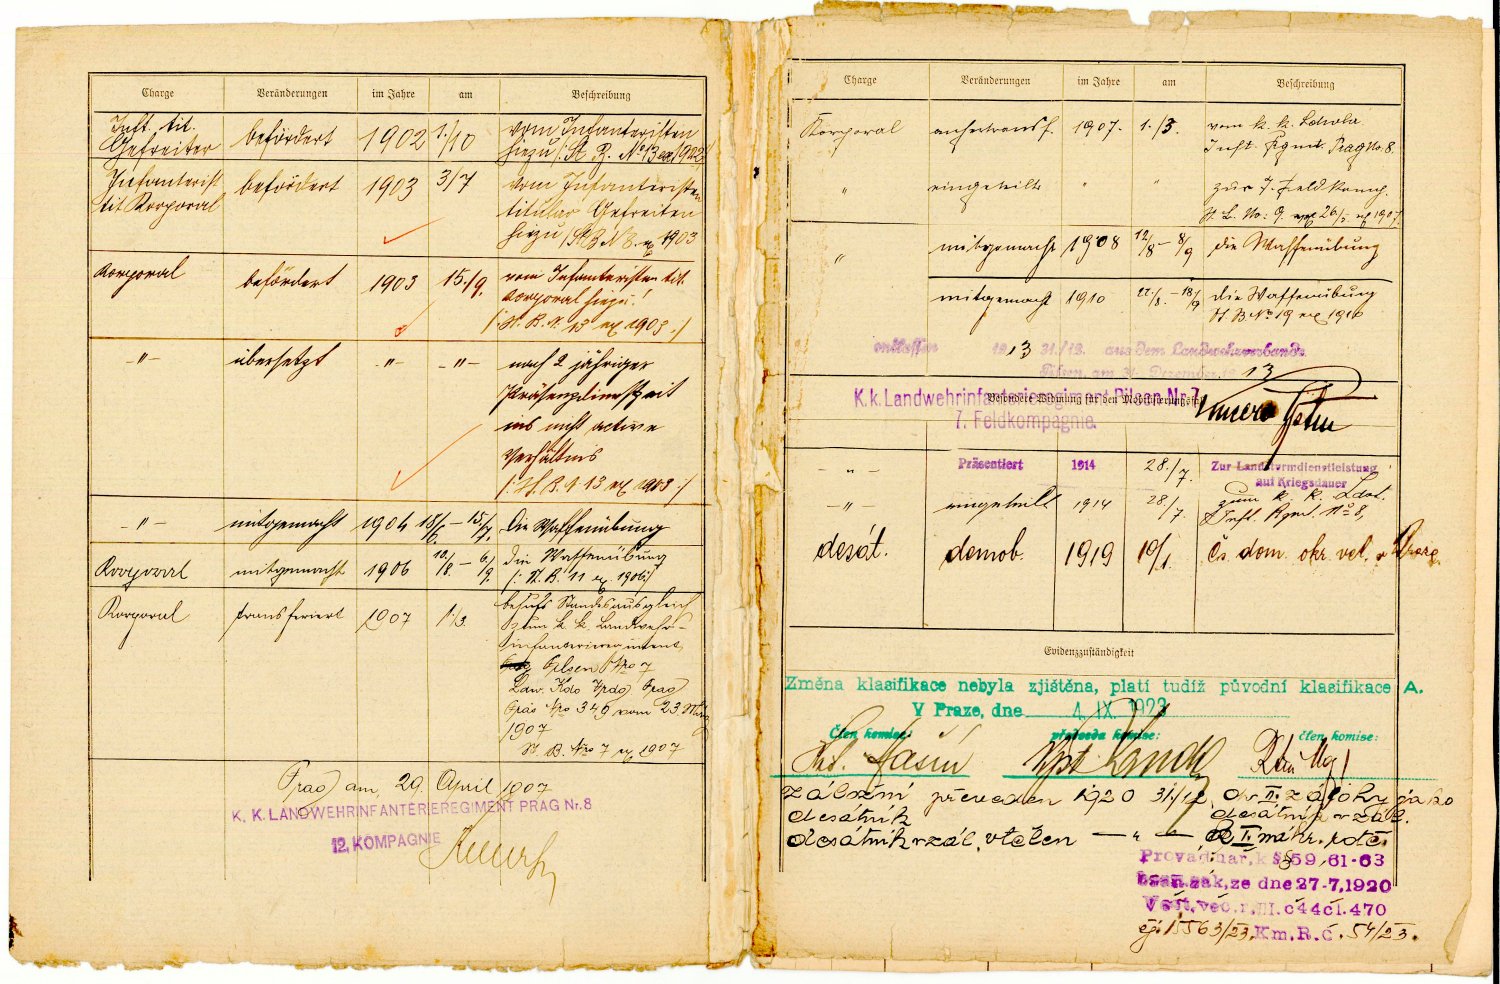 Charge Veränderungen im Jahre am Beschreibung
Inft. tit. befördert 1902 1./10 vom Infanteristen
Gefreiter hiezu /: St. B. No 13 ex 1902
Infanterist befördert 1903 3/7 vom Infanteristen
tit Korporal titular Gefreiten
hiezu /: St B N 8. ex 1903
Korporal befördert 1903 15./9. vom Infanteristen tit.
Korporal hiezu!
/: St. B. N. 13 ex 1903 ./
-"- übersetzt -"- -"- nach 2 jähriger
Präsenzdienstzeit
ins nicht active
Verhältnis
/: St. B. N 13 ex 1903 ./
-"- mitgemacht 1904 18/6. – 15/7. Die Waffenübung
Korporal mitgemacht 1906 10./8. – 6/9. die Waffenübung
/: St. B. 11 ex 1906 :/
Korporal transferiert 1907 1./3. behufs Standesausgleich
zum k. k. Landwehr-
infanterieregiment
Pilsen Nro 7
Ldw. Kdo Prag
Präs Nro 349 vom 23. März
1907
St. B. Nro 7 ex 1907
Prag am 29. April 1907
K. K. LANDWEHRINFANTERIEREGIMENT PRAG Nr. 8
12. KOMPAGNIE
Charge Veränderungen im Jahre am Beschreibung
Korporal anhertransf. 1907. 1./3. vom k. k. Landw.
Inft. Rgmt. Prag No. 8.
" eingeteilt " " zur 7. Feldkomp.
St. B. No: 9. ex 1907
" mitgemacht 1908 12/8 – 8/9 die Waffenübung
mitgemacht 1910 22./8. – 18/9 die Waffenübung
St B No 19 ex 1910
entlassen 1913 31./12. aus dem Landwehrverbande.
Pilsen, am 31. Dezember 1913
K. k. Landwehrinfanterieregiment Pilsen Nr. 7
Besondere Widmung für den Mobilisierungsfall
7. Feldkompagnie.
-"- Präsentiert 1914 28./7. Zur Landsturmdienstleistung
auf Kriegsdauer
-"- eingeteilt 1914 28/7. zum k. k. Ldst.
Inft. Rgmt. No 8,
desát. demob. 1919 10/1. čs. dom. okr. vel. v Praze.
Evidenzzuständigkeit
Změna klasifikace nebyla zjištěna, platí tudíž původní klasifikace A.
V Praze, dne 4. IX. 1923
Člen komise: předseda komise: člen komise:
zálozní převeden 1920 31./12. do II. zálohy jako
desátník desátník v zál.
desátník v zál. vtělen — " — do I. náhr. rotě.
Provád. nař. k § 59, 61-63
bran. zák. ze dne 27-7. 1920
Věst. věc. r. III. č 44 čl. 470
čj. 15563/23. Km. R. č. 54/23.